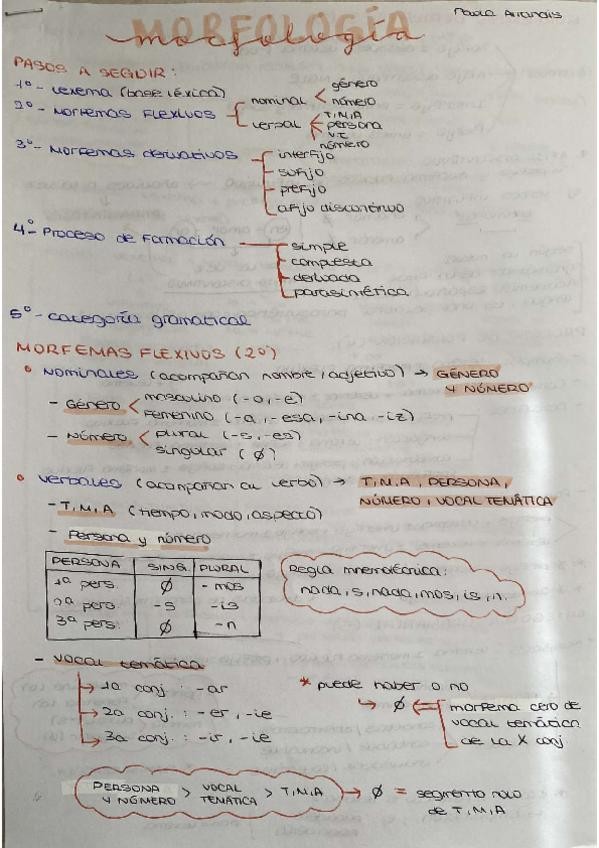 Paula Arrandis
MORFOLOGÍA
morfología
PASOS A SEGUIR:
1º - Lexema (base léxica)
2º - Morfemas Flexivos
nominal
género
número
verbal
T.M.A
persona
V.T.
número
3º - Morfemas derivativos
interfijo
sufijo
prefijo
afijo discontinuo
4º - Proceso de Formación
simple
compuesta
derivada
parasintética
5º - categoría gramatical
MORFEMAS FLEXIVOS (2º)
• Nominales (acompañan nombre, adjetivo) → GÉNERO Y NÚMERO
- Género < masculino (-o, -e)
femenino (-a, -esa, -ina, -iz)
- Número < plural (-s, -es)
singular (Ø)
• Verbales (acompañan al verbo) → T.M.A, PERSONA,
NÚMERO, VOCAL TEMÁTICA
- T.M.A (tiempo, modo, aspecto)
- Persona y número
PERSONA SING. PLURAL
1ª pers. Ø -mos
2ª pers. -s -is
3ª pers. Ø -n
Regla mnemotécnica:
nada, s, nada, mos, is, n.
- Vocal temática
→ 1ª conj. -ar
→ 2ª conj. : -er, -ie
→ 3ª conj. : -ir, -ie
* puede haber o no
↳ Ø ⇐ morfema cero de
vocal temática
de la X conj.
PERSONA Y NÚMERO > VOCAL TEMÁTICA > T.M.A → Ø = segmento nulo
de T.M.A